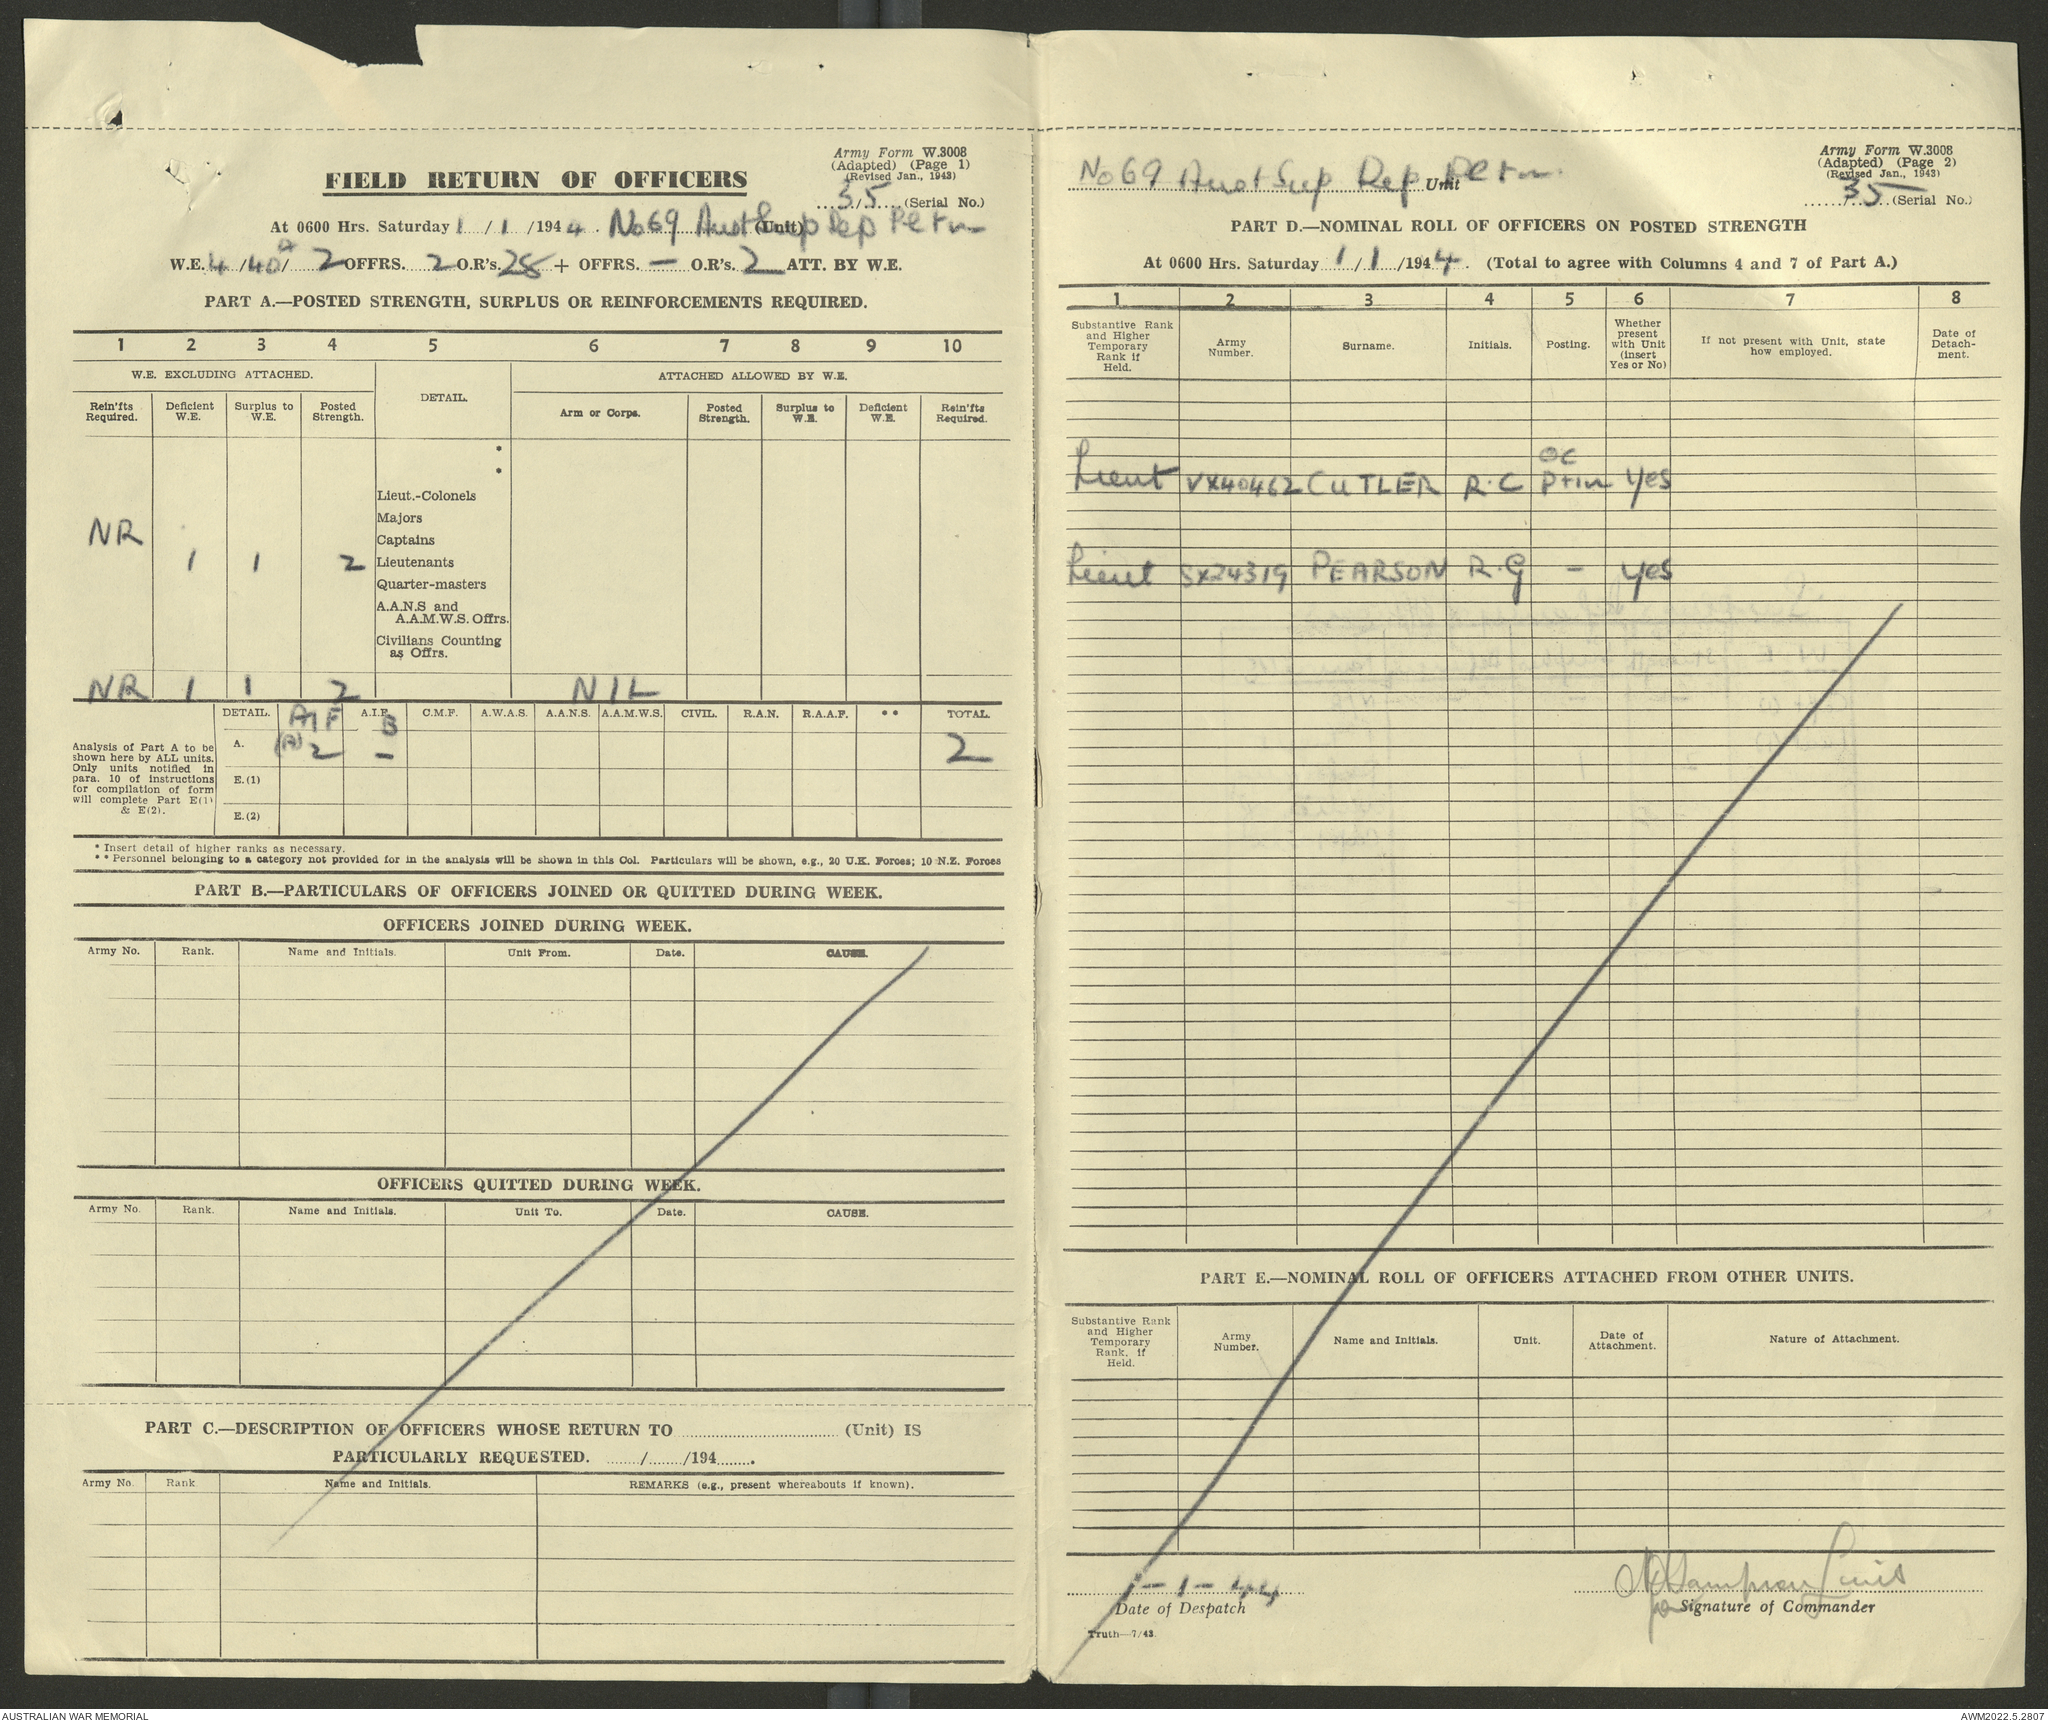 Army Form W.3008
(Adapted) (Page 1)
(Revised Jan., 1943)
FIELD RETURN OF OFFICERS
35 (Serial No.)
At 0600 Hrs. Saturday 1 / 1 /1944. No 69 Aust Sup Dep Pltn (Unit)
W.E. 4 /40A/ 2 OFFRS. 2 O.R's. 28 + OFFRS. — O.R's. 2 ATT. BY W.E.
PART A.—POSTED STRENGTH, SURPLUS OR REINFORCEMENTS REQUIRED.
1 2 3 4 5 6 7 8 9 10
W.E. EXCLUDING ATTACHED. DETAIL. ATTACHED ALLOWED BY W.E.
Rein'fts Required. Deficient W.E. Surplus to W.E. Posted Strength. Arm or Corps. Posted Strength. Surplus to W.E. Deficient W.E. Rein'fts Required.
*
*
Lieut.-Colonels
Majors
NR
Captains
1 1 2 Lieutenants
Quarter-masters
A.A.N.S and
A.A.M.W.S. Offrs.
Civilians Counting
as Offrs.
NR 1 1 2 NIL
DETAIL. AIF (A) A.I.F. B C.M.F. A.W.A.S. A.A.N.S. A.A.M.W.S. CIVIL. R.A.N. R.A.A.F. ** TOTAL.
A. 2 – 2
E.(1)
E.(2)
Analysis of Part A to be
shown here by ALL units.
Only units notified in
para. 10 of instructions
for compilation of form
will complete Part E(1)
& E(2).
* Insert detail of higher ranks as necessary.
** Personnel belonging to a category not provided for in the analysis will be shown in this Col. Particulars will be shown, e.g., 20 U.K. Forces; 10 N.Z. Forces
PART B.—PARTICULARS OF OFFICERS JOINED OR QUITTED DURING WEEK.
OFFICERS JOINED DURING WEEK.
Army No. Rank. Name and Initials. Unit From. Date. CAUSE.
OFFICERS QUITTED DURING WEEK.
Army No. Rank. Name and Initials. Unit To. Date. CAUSE.
PART C.—DESCRIPTION OF OFFICERS WHOSE RETURN TO ........ (Unit) IS
PARTICULARLY REQUESTED. ......../......../194........
Army No. Rank. Name and Initials. REMARKS (e.g., present whereabouts if known).
Army Form W.3008
(Adapted) (Page 2)
(Revised Jan., 1943)
No 69 Aust Sup Dep Pltn. Unit
35 (Serial No.)
PART D.—NOMINAL ROLL OF OFFICERS ON POSTED STRENGTH
At 0600 Hrs. Saturday 1 / 1 /1944. (Total to agree with Columns 4 and 7 of Part A.)
1 2 3 4 5 6 7 8
Substantive Rank and Higher Temporary Rank if Held. Army Number. Surname. Initials. Posting. Whether present with Unit (insert Yes or No) If not present with Unit, state how employed. Date of Detachment.
Lieut VX40462 CUTLER R.C OC Pltn Yes
Lieut SX24319 PEARSON R.G – Yes
PART E.—NOMINAL ROLL OF OFFICERS ATTACHED FROM OTHER UNITS.
Substantive Rank and Higher Temporary Rank, if Held. Army Number. Name and Initials. Unit. Date of Attachment. Nature of Attachment.
1 – 1 – 44
Date of Despatch
Signature of Commander
Truth—7/43.
AUSTRALIAN WAR MEMORIAL
AWM2022.5.2807